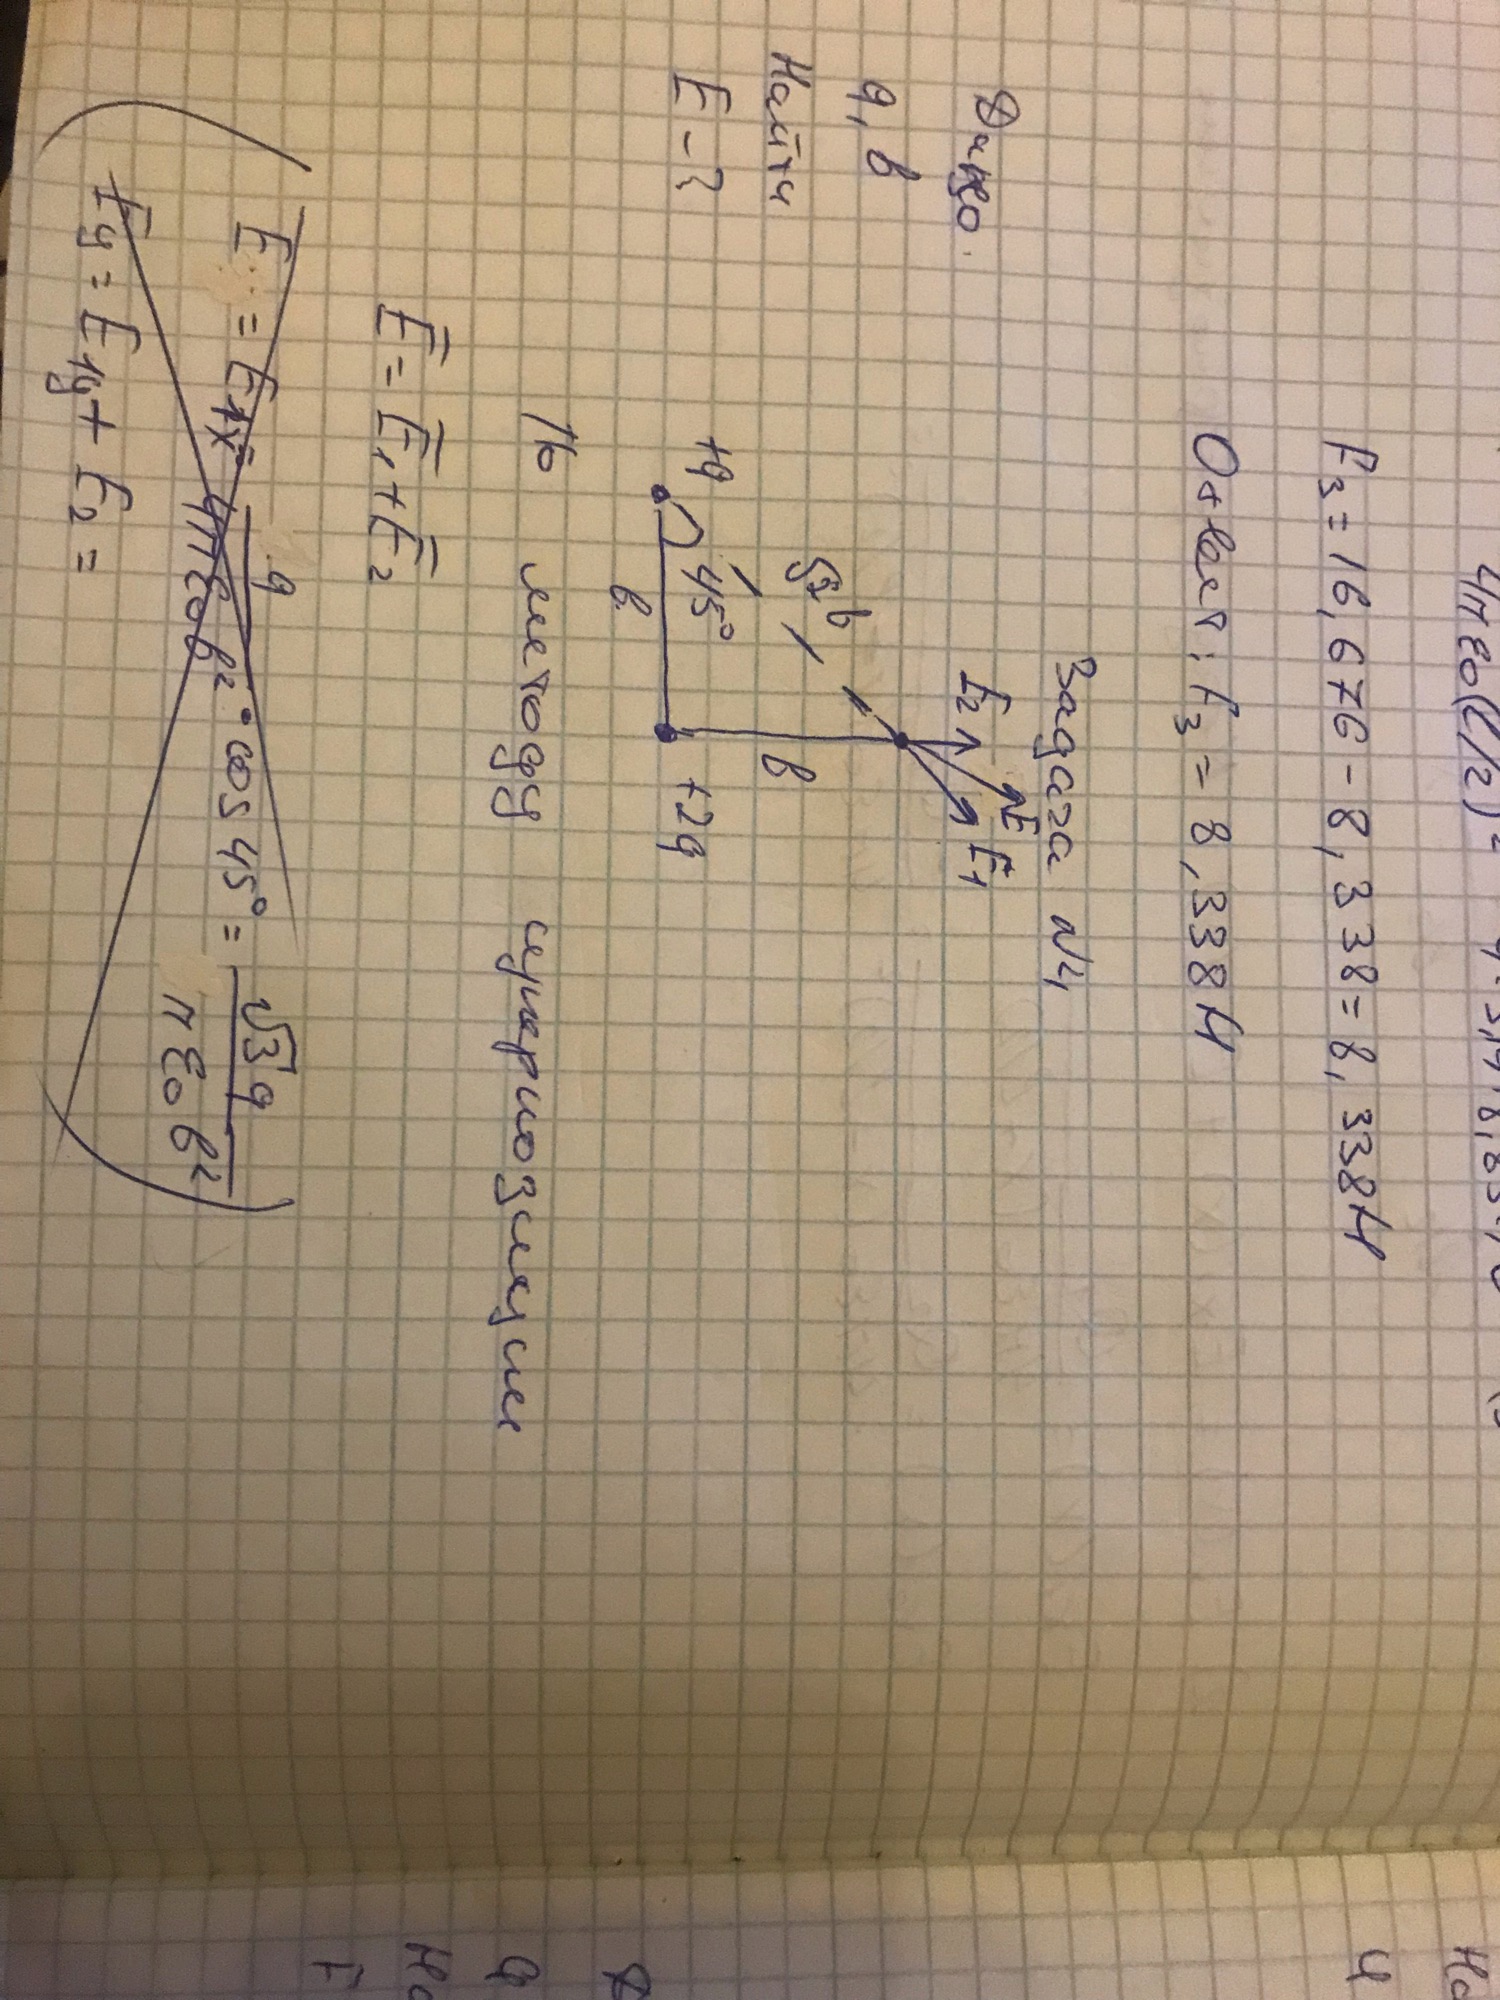 4πε₀(l/2)²
F₃ = 16,676 - 8,338 = 8,338 Н
Ответ: F₃ = 8,338 Н
Задача №4
Дано
q, b
Найти
E - ?
E₂
E
E₁
√2 b
b
+q
45°
+2q
b
По методу суперпозиции
E̅ = E̅₁ + E̅₂
E = E₁ₓ = q / 4πε₀b² · cos 45° = √3 q / πε₀b²
Ey = E₁y + E₂ =
Ч
q
F